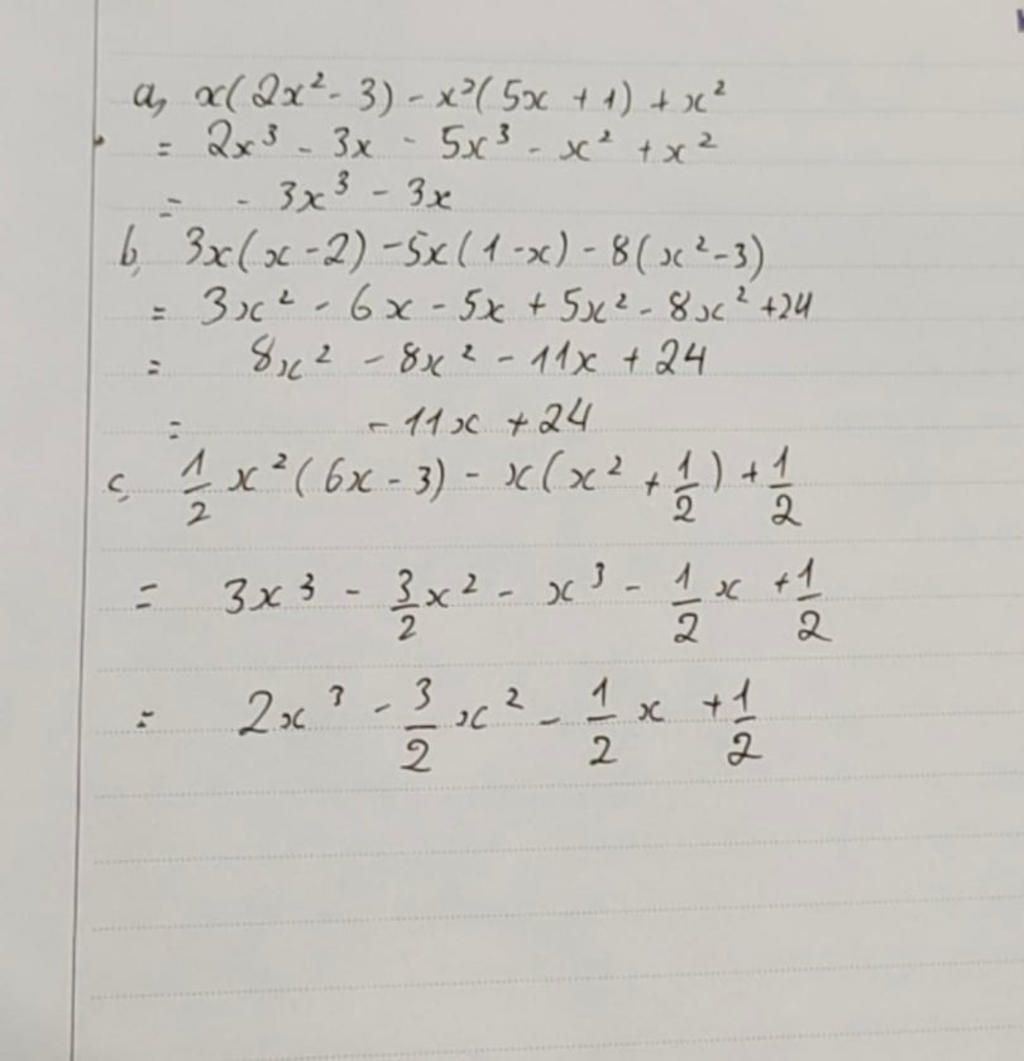 a, x(2x² - 3) - x²(5x + 1) + x²
= 2x³ - 3x - 5x³ - x² + x²
= - 3x³ - 3x
b, 3x(x - 2) - 5x(1 - x) - 8(x² - 3)
= 3x² - 6x - 5x + 5x² - 8x² + 24
= 8x² - 8x² - 11x + 24
= - 11x + 24
c, 1/2 x²(6x - 3) - x(x² + 1/2) + 1/2
= 3x³ - 3/2 x² - x³ - 1/2 x + 1/2
= 2x³ - 3/2 x² - 1/2 x + 1/2